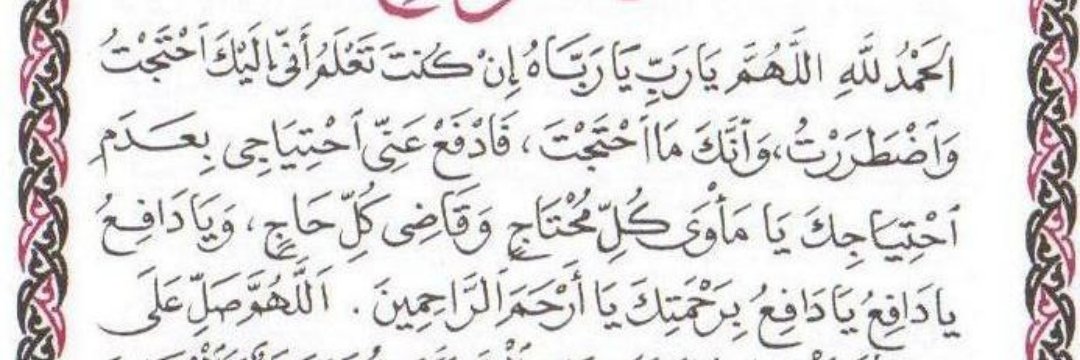 اَلْحَمْدُ لِلَّهِ اللَّهُمَّ يَارَبِّ يَارَبَّاهُ إِنْ كُنتَ تَعْلَمُ أَنِّي إِلَيْكَ اَحْتَجْتُ
وَاَضْطَرَرْتُ، وَاَنَّكَ مَااَحْتَجْتَ، فَادْفَعْ عَنِّي اَحْتِيَاجِي بِعَدَمِ
اَحْتِيَاجِكَ يَا مَأْوَى كُلِّ مُحْتَاجٍ وَقَاضِى كُلِّ حَاجٍ، وَيَادَافِعُ
يادَافِعُ يَادَافِعُ بِرَحْمَتِكَ يَا أَرْحَمَ الرَّاحِمِينَ. اَللَّهُمَّ صَلِّ عَلَى